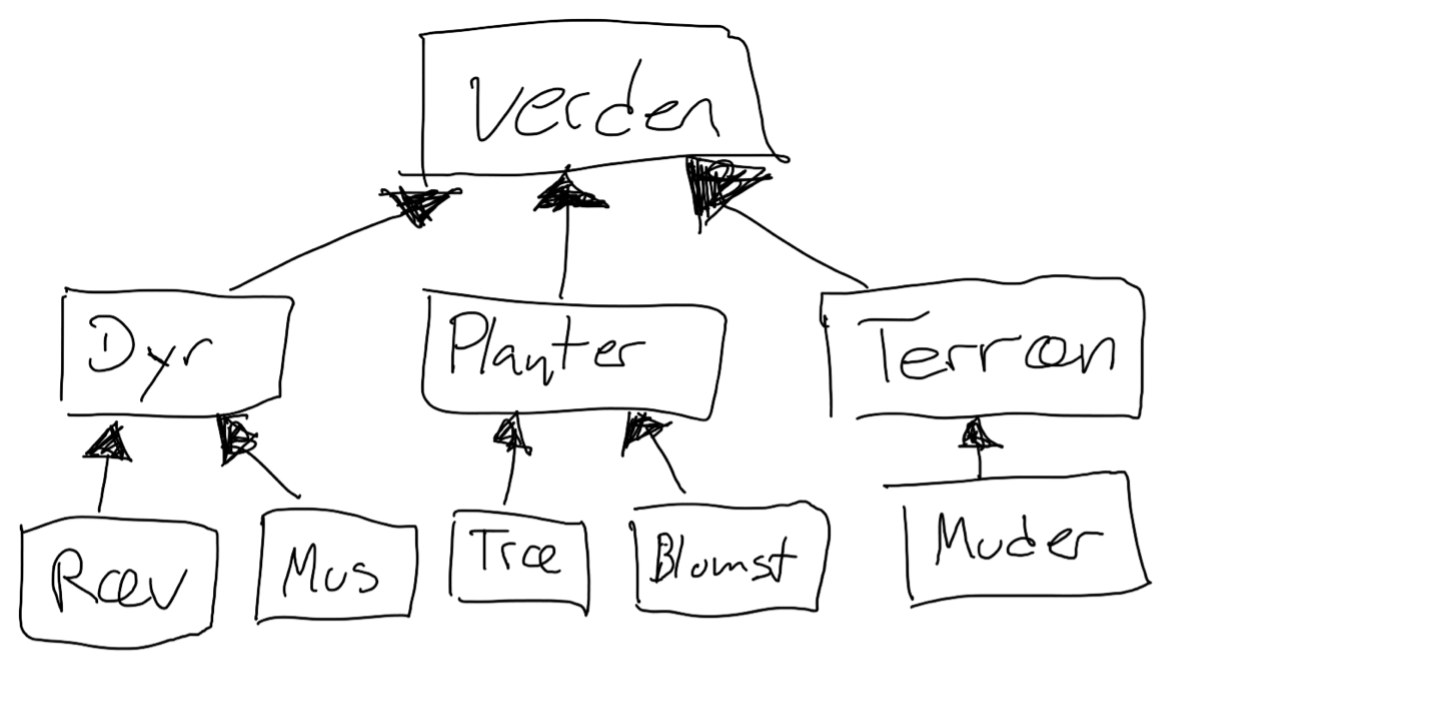 Verden
Dyr
Planter
Terræn
Ræv
Mus
Træ
Blomst
Muder